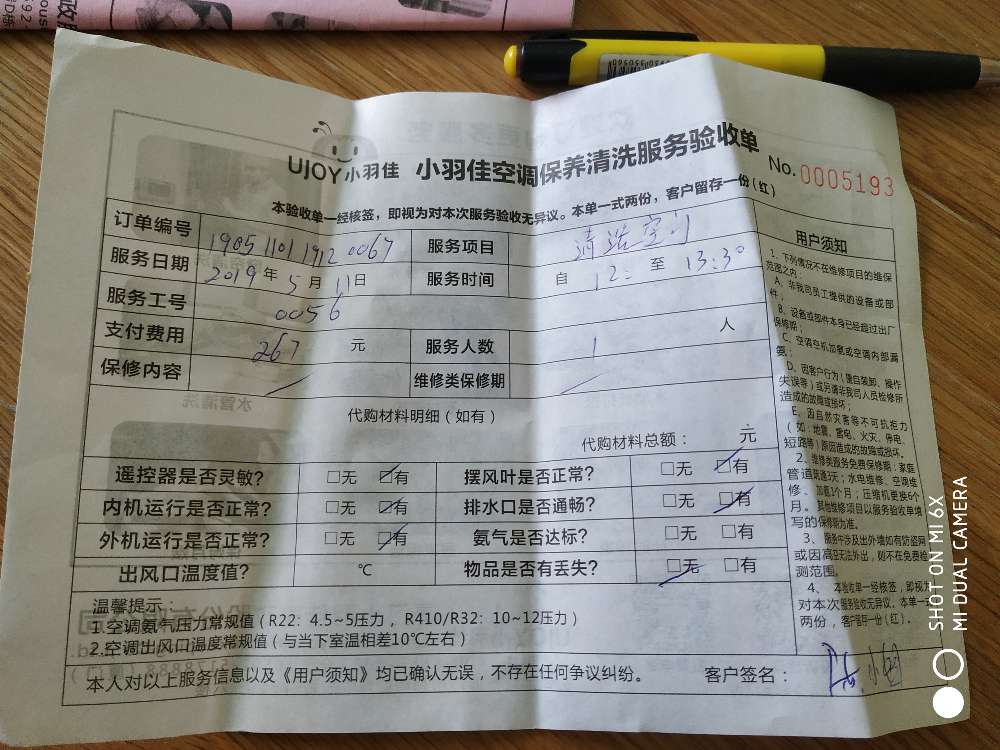 UJOY小羽佳 小羽佳空调保养清洗服务验收单 No.0005193
本验收单一经核签，即视为对本次服务验收无异议。本单一式两份，客户留存一份(红)
订单编号 1905110119120067 服务项目 清洗空调
服务日期 2019年5月11日 服务时间 自12: 至13:30
服务工号 0056
支付费用 267 元 服务人数 1 人
保修内容 维修类保修期
代购材料明细（如有）
代购材料总额： 元
遥控器是否灵敏? □无 □有 摆风叶是否正常? □无 □有
内机运行是否正常? □无 □有 排水口是否通畅? □无 □有
外机运行是否正常? □无 □有 氨气是否达标? □无 □有
出风口温度值? ℃ 物品是否有丢失? □无 □有
温馨提示：
1.空调氨气压力常规值（R22: 4.5~5压力，R410/R32: 10~12压力）
2.空调出风口温度常规值（与当下室温相差10℃左右）
本人对以上服务信息以及《用户须知》均已确认无误，不存在任何争议纠纷。 客户签名：
用户须知
1、下列情况不在维修项目的维保
范围之内：
A、非我司员工提供的设备或部
件；
B、设备或部件本身已经超过出厂
保修期；
C、空调空机加氨或空调内部漏
氨；
D、因客户行为（擅自装卸、操作
失误等）或另请非我司人员检修所
造成的故障或损坏；
E、因自然灾害等不可抗拒力
（如：地震、雷电、火灾、停电、
短路等）原因造成的故障或损坏。
2、维修类服务免费保修期：家庭
管道疏通3天；水电维修、空调维
修、加氨1个月；压缩机更换6个
月。其他维修项目以服务验收单填
写的保修期为准。
3、服务中涉及出外墙如有防盗网
或因高旧无法外出，则不在免费检
测范围。
4、本验收单一经核签，即视为
对本次服务验收无异议。本单一式
两份，客户留存一份(红)。
水管清洗
SHOT ON MI 6X
MI DUAL CAMERA